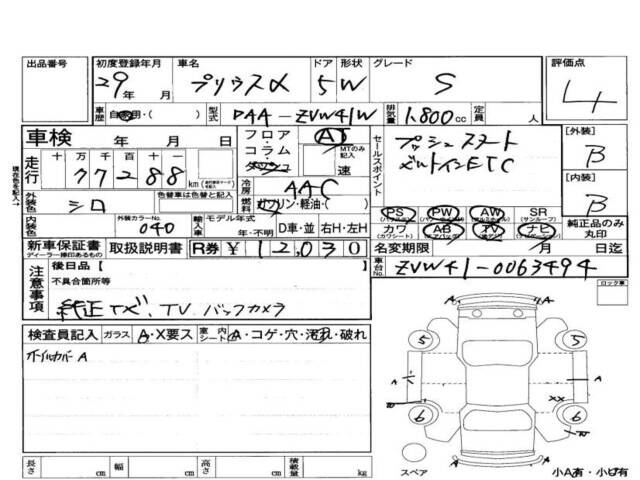 出品番号 初度登録年月 車名 ドア 形状 グレード 評価点
29年 月 プリウスα 5 W S 4
車歴 自家用・( ) 型式 DAA-ZVW41W 排気量 1.800cc 定員 人
車検 年 月 日 フロア・コラム・ AT MTのみ記入 速 セールスポイント プッシュスタート [外装]
走行 十 万 千 百 十 一 77288 km B
ビルトインETC
外装色 シロ 色替車は色替と記入 冷房 AAC 燃料 ガソリン・軽油・( ) [内装]
B
内装色 外装カラーNo. 040 輸入車 モデル年式 年・不明 D車・並 右H・左H
PS PW AW SR 純正品のみ丸印
カワ AB TV ナビ
新車保証書 取扱説明書 R券 ¥12,030 名変期限 / 月 日迄
ディーラー捺印あるもの
車台No. ZVW41-0063494
注意事項 後日品【 】
不具合箇所等
純正ナビ、TV バックカメラ
ロック車
検査員記入 ガラス A・X要ス 室内シート A・コゲ・穴・汚れ・破れ
ホイルカバーA
5 5
A A A
XX
6 6
A
スペア 小A有・小U有
長さ cm 幅 cm 高さ cm 積載量 kg
現在色を記入